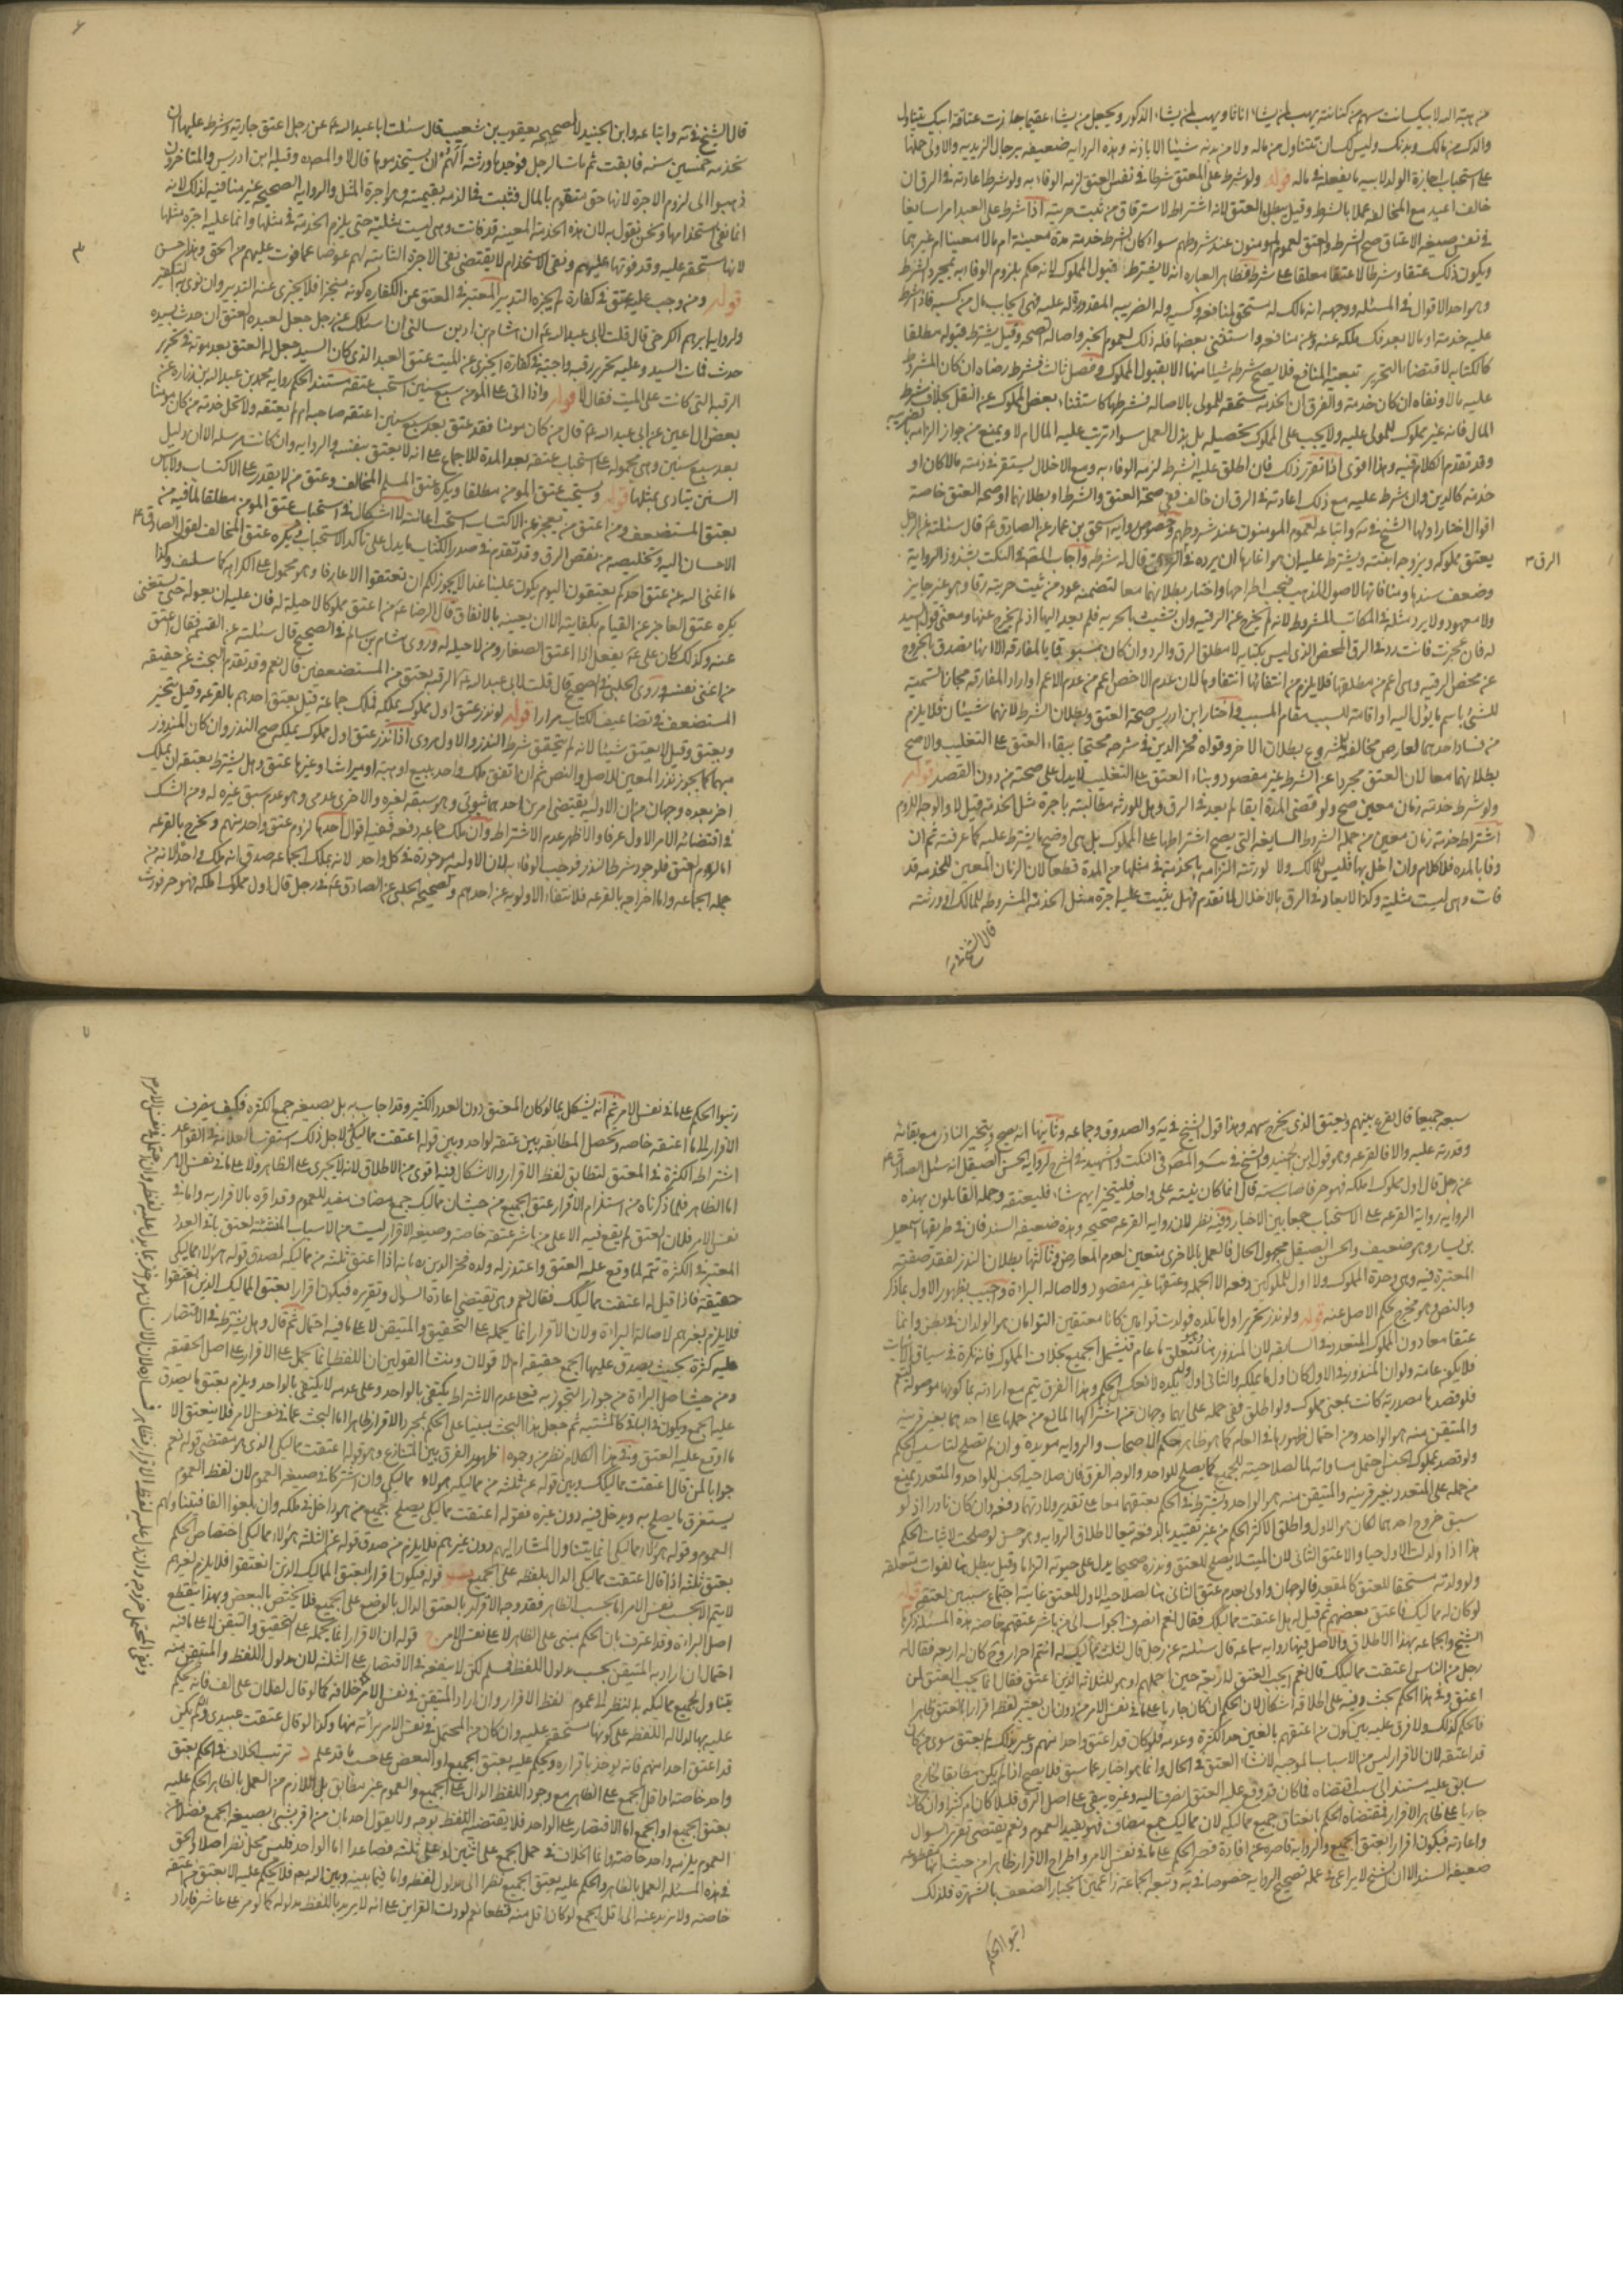 من هبة الله لابيك انت سهم من كنانته يهب لمن يشاء اناثا ويهب لمن يشاء الذكور ويجعل من يشاء عقيما جازت عتاقة ابيك يتناول
والدك من مالك وبدنك وليس لك ان تتناول من ماله ولا من بدنه شيئا الا باذنه وهذه الرواية ضعيفة برجال الزيدية والاولى حملها
على استحباب اجازة الولد لابيه ما يفعله في ماله قوله ولو شرط على المعتق شرطا في نفس العتق لزمه الوفاء به ولو شرط اعادته في الرق ان
خالف اعيد مع المخالفة عملا بالشرط وقيل يبطل العتق لانه اشتراط لاسترقاق من ثبت حريته اذا شرط على العبد امرا سايغا
في نفس صيغة الاعتاق صح الشرط والعتق لعموم المومنون عند شروطهم سواء كان الشرط خدمته مدة معينة ام مالا معينا ام غيرهما
ويكون ذلك عتقا وشرطا لا عتقا معلقا على شرط فظاهر العبارة انه لا يشترط قبول المملوك لانه حكم بلزوم الوفاء به بمجرد الشرط
وهو احد الاقوال في المسئلة ووجهه انه مالك له يستحق لمنافعه وكسبه وله الضريبة المقدورة له عليه فهي ايجاب مال من كسبه فاذا شرط
عليه خدمته او مالا بعد فك ملكه عنه وعن منافعه واستثنى بعضها فله ذلك لعموم الخبر واصالة الصحة وقيل يشترط قبوله مطلقا
كالكتابة لاقتضاء التحرير تبعية المنافع فلا يصح شرط شيئا منها الا بقبول المملوك وفصل ثالث فشرط رضاه ان كان المشروط
عليه مالا ونفاه ان كان خدمة والفرق ان الخدمة مستحقة للمولى بالاصالة فشرطها كاستثناء بعض المملوك عن النقل بخلاف شرط
المال فانه غير مملوك للمولى عليه ولا يجب على المملوك تحصيله بل بذل العمل سواء ترتب عليه المال ام لا ويمنع من جواز الزامه بالضريبة
وقد تقدم الكلام فيه وهذا اقوى اذا تقرر ذلك فان اطلق عليه الشرط لزمه الوفاء به ومع الاخلال يستقر في ذمته مالا كان او
خدمة كالدين وان شرط عليه مع ذلك اعادته في الرق ان خالف ففي صحة العتق والشرط او بطلانهما او صحة العتق خاصة
اقوال اختار اولها الشيخ في واتباعه لعموم المومنون عند شروطهم وخصوص رواية اسحق بن عمار عن الصادق ع قال سئلته عن الرجل
يعتق مملوكه ويزوجه ابنته ويشترط عليه ان هو اغارها ان يرده في الرق قال له شرطه واجاب المصنف في النكت بشذوذ الرواية
وضعف سندها ومنافاتها لاصول المذهب فيجب اطراحها واختار بطلانهما معا لتضمنه عود من ثبت حريته رقا وهو غير جايز
ولا معهود ولا يرد مثله في المكاتب المشروط لانه لم يخرج عن الرقية وان تشبث بالحرية فلم يعد اليها اذ لم يخرج عنها ومعنى قول السيد
له فان عجزت فانت رد في الرق المحض الذي ليس بكتابة لا مطلق الرق والرد وان كان مسبوقا بالمفارقة الا انها تصدق بالخروج
عن محض الرقية وهي اعم من مطلقها فلا يلزم من انتفائها انتفاؤها لان عدم الاخص اعم من عدم الاعم او اراد المفارقة مجازا تسمية
للشئ باسم ما يؤل اليه او اقامة للسبب مقام المسبب واختار ابن ادريس صحة العتق وبطلان الشرط لانهما شيئان فلا يلزم
من فساد احدهما لعارض مخالفة المشروع بطلان الاخر وقواه فخر الدين في شرحه محتجا ببقاء العتق على التغليب والاصح
بطلانهما معا لان العتق مجردا عن الشرط غير مقصود وبناء العتق على التغليب لا يدل على صحته من دون القصد قوله
ولو شرط خدمته زمان معين صح ولو قضى المدة ابقا لم يعد في الرق وهل للورثة مطالبته باجرة مثل الخدمة قيل لا والوجه اللزوم
اشتراط خدمة زمان معين من جملة الشروط السايغة التي يصح اشتراطها على المملوك بل هي اوضح ما يشترط عليه كما عرفته ثم ان
وفا بالمدة فلا كلام وان اخل بها فليس للمالك ولا لورثته الزامه بالخدمة في مثلها من المدة قطعا لان الزمان المعين للخدمة قد
فات وهي ليست مثلية وكذا لا يعاد في الرق بالاخلال لما تقدم فهل يثبت عليه اجرة مثل الخدمة المشروطة للمالك او ورثته
قال الشيخ
الرق م
قال الشيخ في ية واتباعه وابن الجنيد لا لصحيحة يعقوب بن شعيب قال سئلت ابا عبد الله ع عن رجل اعتق جاريته وشرط عليها ان
تخدمه خمسين سنة فابقت ثم مات الرجل فوجدها ورثته الهم ان يستخدموها قال لا والمصنف وقبله ابن ادريس والمتاخرون
ذهبوا الى لزوم الاجرة لانها حق متقوم بالمال فتثبت في الذمة بقيمته وهو اجرة المثل والرواية الصحيحة غير منافية لذلك لانه
انما نفى استخدامها ونحن نقول به لان هذه الخدمة المعينة قد فاتت وهي ليست مثلية حتى يلزم الخدمة في مثلها وانما عليها اجرة مثلها
لانها مستحقة عليه وقد فوتها عليهم ونفى الاستخدام لا يقتضي نفى الاجرة الثابتة لهم عوضا عما فوت عليهم من الحق وهذا حسن
قوله ومن وجب عليه عتق في كفارة لم يجزه التدبير المعتبر في المعتق عن الكفارة كونه منجزا فلا يجزي عنه التدبير وان نوى به التكفير
ولرواية ابرهيم الكرخي قال قلت لابي عبد الله ع ان هشام بن ادين سالني ان اسئلك عن رجل جعل لعبده العتق ان حدث بسيده
حدث فمات السيد وعليه تحرير رقبة واجبة في كفارة ايجزي عن الميت عتق العبد الذي كان السيد جعل له العتق بعد موته في تحرير
الرقبة التي كانت على الميت فقال لا قوله واذا اتى على المومن سبع سنين استحب عتقه مستند الحكم رواية محمد بن عبد الله بن زرارة عن
بعض ال اعين عن ابي عبد الله ع قال من كان مومنا فقد عتق بعد سبع سنين اعتقه صاحبه ام لم يعتقه ولا تحل خدمة من كان مومنا
بعد سبع سنين وهي محمولة على استحباب عتقه بعد المدة للاجماع على انه لا يعتق بنفسه والرواية وان كانت مرسلة الا ان دليل
السنن يتادى بمثلها قوله ويستحب عتق المومن مطلقا ويكره عتق المسلم المخالف وعتق من لا يقدر على الاكتساب ولا باس
بعتق المستضعف ومن اعتق من يعجز عن الاكتساب استحب اعانته لا اشكال في استحباب عتق المومن مطلقا لما فيه من
الاحسان اليه وتخليصه من نقص الرق وقد تقدم في صدر الكتاب ما يدل على تاكد الاستحباب ويكره عتق المخالف لقول الصادق ع
ما اغنى الله عن عتق احدكم يعتقون اليوم يكون علينا غدا لا يجوز لكم ان تعتقوا الا عارفا وهو محمول على الكراهة كما سلف وكذا
يكره عتق العاجز عن القيام بكفايته الا ان يعينه بالانفاق قال الرضا ع من اعتق مملوكا لا حيلة له فان عليه ان يعوله حتى يستغني
عنه وكذلك كان علي ع يفعل اذا اعتق الصغار ومن لا حيلة له وروى هشام بن سالم في الصحيح قال سئلته عن النسمة فقال اعتق
من اغنى نفسه وروى الحلبي في الصحيح قال قلت لابي عبد الله ع الرقبة يعتق من المستضعفين قال نعم وقد تقدم البحث عن حقيقة
المستضعف في تضاعيف الكتاب مرارا قوله لو نذر عتق اول مملوك يملكه فملك جماعة قيل يعتق احدهم بالقرعة وقيل يتخير
ويعتق وقيل لا يعتق شيئا لانه لم يتحقق شرط النذر والاول مروي اذا نذر عتق اول مملوك يملكه صح النذر وان كان المنذور
مبهما كما يجوز نذر المعين للاصل والنص ثم ان اتفق ملك واحد ببيع او هبة او ميراث او غيرها عتق وهل يشترط بعتقه ان يملك
اخر بعده وجهان من ان الاولية يقتضي امرين احدهما ثبوتي وهو سبقه لغيره والاخر عدمي وهو عدم سبق غيره له ومن الشك
في اقتضائه الامر الاول عرفا والاظهر عدم الاشتراط وان ملك جماعة دفعة ففيه اقوال احدها لزوم عتق واحد منهم ويخرج بالقرعة
اما لزوم العتق فلوجود شرط النذر فوجب الوفاء به لان الاولية موجودة في كل واحد لانه بملك الجماعة صدق انه ملك واحدا لانه من
جملة الجماعة واما اخراجه بالقرعة فلانتفاء الاولوية عن احدهم ولصحيحة الحلبي عن الصادق ع في رجل قال اول مملوك املكه فهو حر فورث
سبعة جميعا قال يقرع بينهم ويعتق الذي يخرج سهمه وهذا قول الشيخ في ية والصدوق وجماعة وثانيها انه يصح ويتخير الناذر مع بقائه
وقدرته عليه والا فالقرعة وهو قول ابن الجنيد والشيخ في والمصنف في النكت والشهيد في الشرح لرواية الحسن الصيقل انه سئل الصادق ع
عن رجل قال اول مملوك املكه فهو حر فاصاب ستة قال انما كان نيته على واحد فليتخير ايهم شاء فليعتقه وحمله القايلون بهذه
الرواية رواية القرعة على الاستحباب جمعا بين الاخبار وفيه نظر لان رواية القرعة صحيحة وهذه ضعيفة السند فان في طريقها اسمعيل
بن يسار وهو ضعيف والحسن الصيقل مجهول الحال فالعمل بالاخرى متعين لعدم المعارض وثالثها بطلان النذر لفقد صفته
المعتبرة فيه وهي وحدة المملوك ولا اول لمملوكين دفعة الا الجملة وعتقها غير مقصود ولاصالة البراءة وجيب بظهور الاول بما ذكر
وبالنص وهو مخرج لحكم الاصل عنه قوله ولو نذر تحرير اول ما تلده فولدت توامين كانا معتقين التوامان هو الولدان في بطن وانما
عتقا معا دون المملوك المتعدد في السابقة لان المنذور هنا متعلق ما عام فيشمل الجميع بخلاف المملوك فانه نكرة في سياق الاثبات
فلا يكون عامة ولو ان المنذور في الاول كان اول ما يملكه والثاني اول ولد تلده لانعكس الحكم وهذا الفرق يتم مع ارادته بما كونها موصولة
فلو قصد ما مصدرية كانت بمعنى مملوك ولو اطلق ففي حمله على ايهما وجهان من اشتراكها المانع من حملها على احدهما بغير قرينة
والمتيقن منه هو الواحد ومن احتمال ظهورها في العام كما هو ظاهر حكم الاصحاب والرواية مويدة وان لم تصلح لتاسيس الحكم
ولو قصد بمملوك الجنس احتمل مساواته لما لصلاحيته للجميع كما يصلح للواحد والوجه الفرق فان صلاحية الجنس للواحد والمتعدد يمنع
من حمله على المتعدد بغير قرينة والمتيقن منه هو الواحد ويشترط في الحكم بعتقهما معا على تقدير ولادتهما دفعة وان كان نادرا اذ لو
سبق خروج احدهما لكان هو الاول واطلق الاكثر الحكم من غير تقييد بالدفعة تبعا لاطلاق الرواية وهو حسن لو صلحت لاثبات الحكم
هذا اذا ولدت الاول حيا والا عتق الثاني لان الميت لا يصلح للعتق ونذره صحيحا يدل على حيوته التزاما وقيل يبطل هنا لفوات متعلقه
ولو ولدته مستحقا للعتق كالمقعد فالوجهان واولى بعدم عتق الثاني هنا لصلاحية الاول للعتق غايته اجتماع سببين لعتقه قوله
لو كان له مماليك فاعتق بعضهم ثم قيل له هل اعتقت مماليكك فقال نعم انصرف الجواب الى من باشر عتقهم خاصة هذه المسئلة ذكرها
الشيخ والجماعة بهذا الاطلاق والاصل فيها رواية سماعة قال سئلته عن رجل قال لثلث مماليك له انتم احرار وكان له اربعة فقال له
رجل من الناس اعتقت مماليكك قال نعم ايجب العتق للاربعة حين اجملهم او هو للثلاثة الذين اعتق فقال انما يجب العتق لمن
اعتق وفي هذا الحكم بحث وفيه على اطلاقه اشكال لان الحكم ان كان جاريا على ما في نفس الامر من دون ان يعتبر لفظ اقراره بالعتق ظاهرا
فالحكم كذلك ولا فرق عليه بين كون من اعتقهم بالغين حد الكثرة وعدمه فلو كان قد اعتق واحدا منهم وعبر بذلك لم يعتق سوى من كان
قد اعتقه لان الاقرار ليس من الاسباب الموجبة لانشاء العتق في الحال وانما هو اخبار عما سبق فلا يصح اذا لم يكن مطابقا لخارج
سابق عليه مستند الى سبب اقتضاه فما كان قد وقع عليه العتق انصرف اليه وغيره يبقى على اصل الرق قليلا كان ام كثيرا وان كان
جاريا على ظاهر الاقرار فمقتضاه الحكم بانعتاق جميع مماليكه لان مماليك جمع مضاف فهو يفيد العموم ونعم يقتضي تقرير السوال
واعادته فيكون اقرارا بعتق الجميع والرواية قاصرة عن افادة قصر الحكم على ما في نفس الامر واطراح الاقرار ظاهرا من حيث انها مقطوعة
ضعيفة السند الا ان الشيخ لا يراعي في عمله تصحيح الرواية خصوصا في ية وتبعه الجماعة زاعمين انجبار الضعف بالشهرة فلذلك
رتبوا الحكم
رتبوا الحكم على ما في نفس الامر ثم انه يشكل بما لو كان المعتق دون العدد الكثير وقد اجاب به بل بصيغة جمع الكثرة فكيف ينصرف
الاقرار الى ما اعتقه خاصة وتحصل المطابقة بين عتقه لواحد وبين قوله اعتقت مماليكي لاجل ذلك استقرب العلامة في القواعد
اشتراط الكثرة في المعتق لتطابق لفظ الاقرار والاشكال فيه اقوى من الاطلاق لانه لا يجري على الظاهر ولا على ما في نفس الامر
اما الظاهر فلما ذكرناه من استلزام الاقرار عتق الجميع من حيث ان مماليك جمع مضاف مفيد للعموم وقد اقر به بالاقرار به واما في
نفس الامر فلان العتق لم يقع فيه الا على من باشر عتقه خاصة وصيغة الاقرار ليست من الاسباب المنشئة للعتق باقي العدد
المعتبر في الكثرة تتمة لما وقع عليه العتق واعتذر له ولده فخر الدين ره بانه اذا اعتق ثلثة من مماليكه لصدق قوله هولاء مماليكي
حقيقة فاذا قيل له اعتقت مماليكك فقال نعم وهي تقتضي اعادة السوال وتقريره فيكون اقرارا بعتق المماليك الذين اعتقوا
فلا يلزم بغيرهم لاصالة البراءة ولان الاقرار انما يحمله على التحقيق والمتيقن لا على ما فيه احتمال ثم قال وهل يشترط في الاقتصار
عليه كثرة بحيث يصدق عليها الجمع حقيقة ام لا قولان ومنشا القولين ان اللفظ انما يحمل على الاقرار على اصل الحقيقة
ومن حيث اصل البراءة من جواز التجوز به فعلى عدم الاشتراط يكتفي بالواحد وعلى عدمه لا يكتفي بالواحد ويلزم بعتق ما يصدق
عليه الجمع ويكون في الباقي كالمشتبه ثم جعل هذا البحث مبنيا على الحكم بمجرد الاقرار ظاهرا اما البحث عما في نفس الامر فلا ينعتق الا
ما اوقع عليه العتق وفي هذا الكلام نظر من وجوه ا ظهور الفرق بين المتنازع وهو قوله اعتقت مماليكي الذي هو مقتضى قوله نعم
جوابا لمن قال اعتقت مماليكك وبين قوله عن ثلثة من مماليكه هولاء مماليكي وان اشتركا في صيغة العموم لان لفظ العموم
يستغرق ما يصلح له ويدخل فيه دون غيره فقوله اعتقت مماليكي يصلح لجميع من هو داخل في ملكه وان بلغوا الفا فيتناولهم
العموم وقوله هولاء مماليكي انما يتناول المشار اليهم دون غيرهم فلا يلزم من صدق قوله عن الثلثة هولاء مماليكي اختصاص الحكم
بعتق ثلثة اذا قال اعتقت مماليكي الدال بلفظه على الجميع ب قوله فيكون اقرارا بعتق المماليك الذين اعتقوا فلا يلزم لغيرهم
لا يتم الا بحسب نفس الامر اما بحسب الظاهر فقد وجه الاقرار بالعتق الدال بالوضع على الجميع فلا يختص بالبعض وبهذا ينقطع
اصل البراءة وقد اعترف بان الحكم مبني على الظاهر لا على نفس الامر ج قوله ان الاقرار انما يحمله على التحقيق والمتيقن لا على ما فيه
احتمال ان اراد به المتيقن بحسب مدلول اللفظ فمسلم لكن لا ينفعه في الاقتصار على الثلثة لان مدلول اللفظ والمتيقن منه
يتناول جميع مماليكه بالنظر الى عموم لفظ الاقرار وان اراد المتيقن في نفس الامر خلافه كما لو قال لفلان علي الف فانه يحكم
عليه بها لدلالة اللفظ على كونها مستحقة عليه وان كان من المحتمل في نفس الامر براءته منها وكذا لو قال اعتقت عبيدي ولم يكن
قد اعتق احدا منهم فانه يوخذ باقراره ويحكم عليه بعتق الجميع او البعض على حسب ما قد علم د ترتب الخلاف في الحكم بعتق
واحد خاصة او اقل الجمع على الظاهر مع وجود اللفظ الدال على الجميع والعموم غير مطابق بل اللازم من العمل بالظاهر الحكم عليه
بعتق الجميع او الجمع اما الاقتصار على الواحد فلا يقتضيه اللفظ بوجه ولا يقول احد بان من اقر بشي بصيغة الجمع فضلا عن
العموم يلزمه واحد خاصة وانما الخلاف في حمل الجمع على اثنين او على ثلثة فصاعدا اما الواحد فليس محل نظر اصلا والحق
في هذه المسئلة العمل بالظاهر والحكم عليه بعتق الجميع نظرا الى مدلول لفظه واما فيما بينه وبين الله فلا يحكم عليه الا بعتق من اعتقه
خاصة ولا يزيد عنه الى اقل الجمع لو كان اقل منه قطعا نعم لو دلت القراين على انه لا يريد باللفظ مدلوله كما لو مر على عاشر فاراد